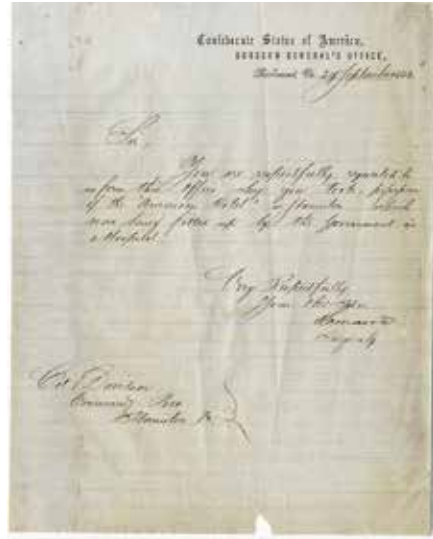 Confederate States of America,
SURGEON GENERAL'S OFFICE,
Richmond, Va. 24 September 186
Sir,
You are respectfully requested to
inform this Office why you took possession
of the "American Hotel" in Staunton which
was being fitted up by the Government as
a Hospital.
Very Respectfully
Your Obt
Col Davidson
Staunton Va